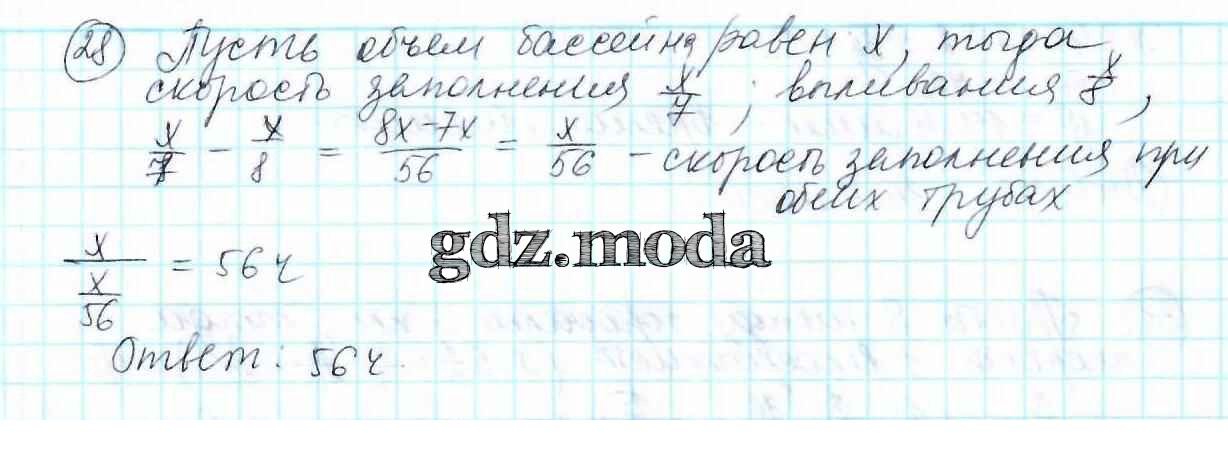 28 Пусть объем бассейна равен x, тогда
скорость заполнения x/7, выливания x/8,
x/7 - x/8 = 8x-7x/56 = x/56 - скорость заполнения при
обеих трубах
gdz.moda
x/(x/56) = 56 ч
Ответ: 56 ч.